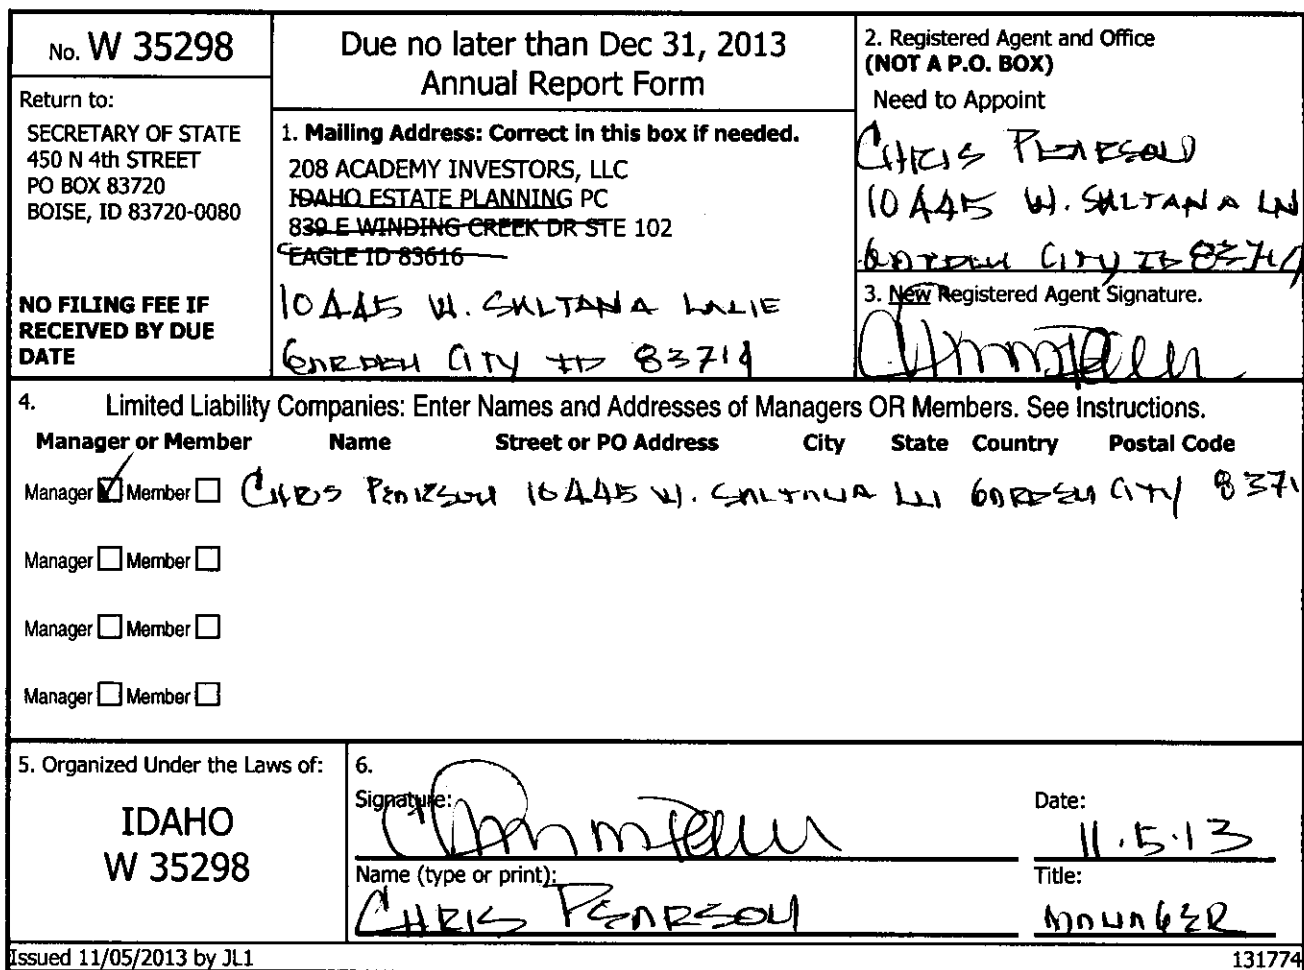 No. W 35298
Return to:
SECRETARY OF STATE
450 N 4th STREET
PO BOX 83720
BOISE, ID 83720-0080
NO FILING FEE IF
RECEIVED BY DUE
DATE
Due no later than Dec 31, 2013
Annual Report Form
1. Mailing Address: Correct in this box if needed.
208 ACADEMY INVESTORS, LLC
IDAHO ESTATE PLANNING PC
839 E WINDING CREEK DR STE 102
EAGLE ID 83616
10445 W. SULTANA LANE
GARDEN CITY ID 83714
2. Registered Agent and Office
(NOT A P.O. BOX)
Need to Appoint
CHRIS PEARSON
10445 W. SULTANA LN
GARDEN CITY ID 83714
3. New Registered Agent Signature.
4. Limited Liability Companies: Enter Names and Addresses of Managers OR Members. See Instructions.
Manager or Member Name Street or PO Address City State Country Postal Code
Manager Member CHRIS PEARSON 10445 W. SULTANA LN GARDEN CITY 8371
Manager Member
Manager Member
Manager Member
5. Organized Under the Laws of:
IDAHO
W 35298
6.
Signature:
Date:
11.5.13
Name (type or print):
CHRIS PEARSON
Title:
MANAGER
Issued 11/05/2013 by JL1
131774